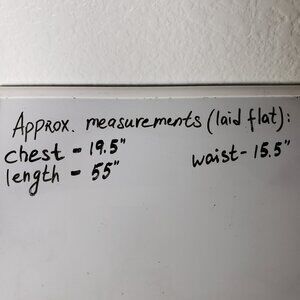 Approx. measurements (laid flat):
chest - 19.5" waist - 15.5"
length - 55"